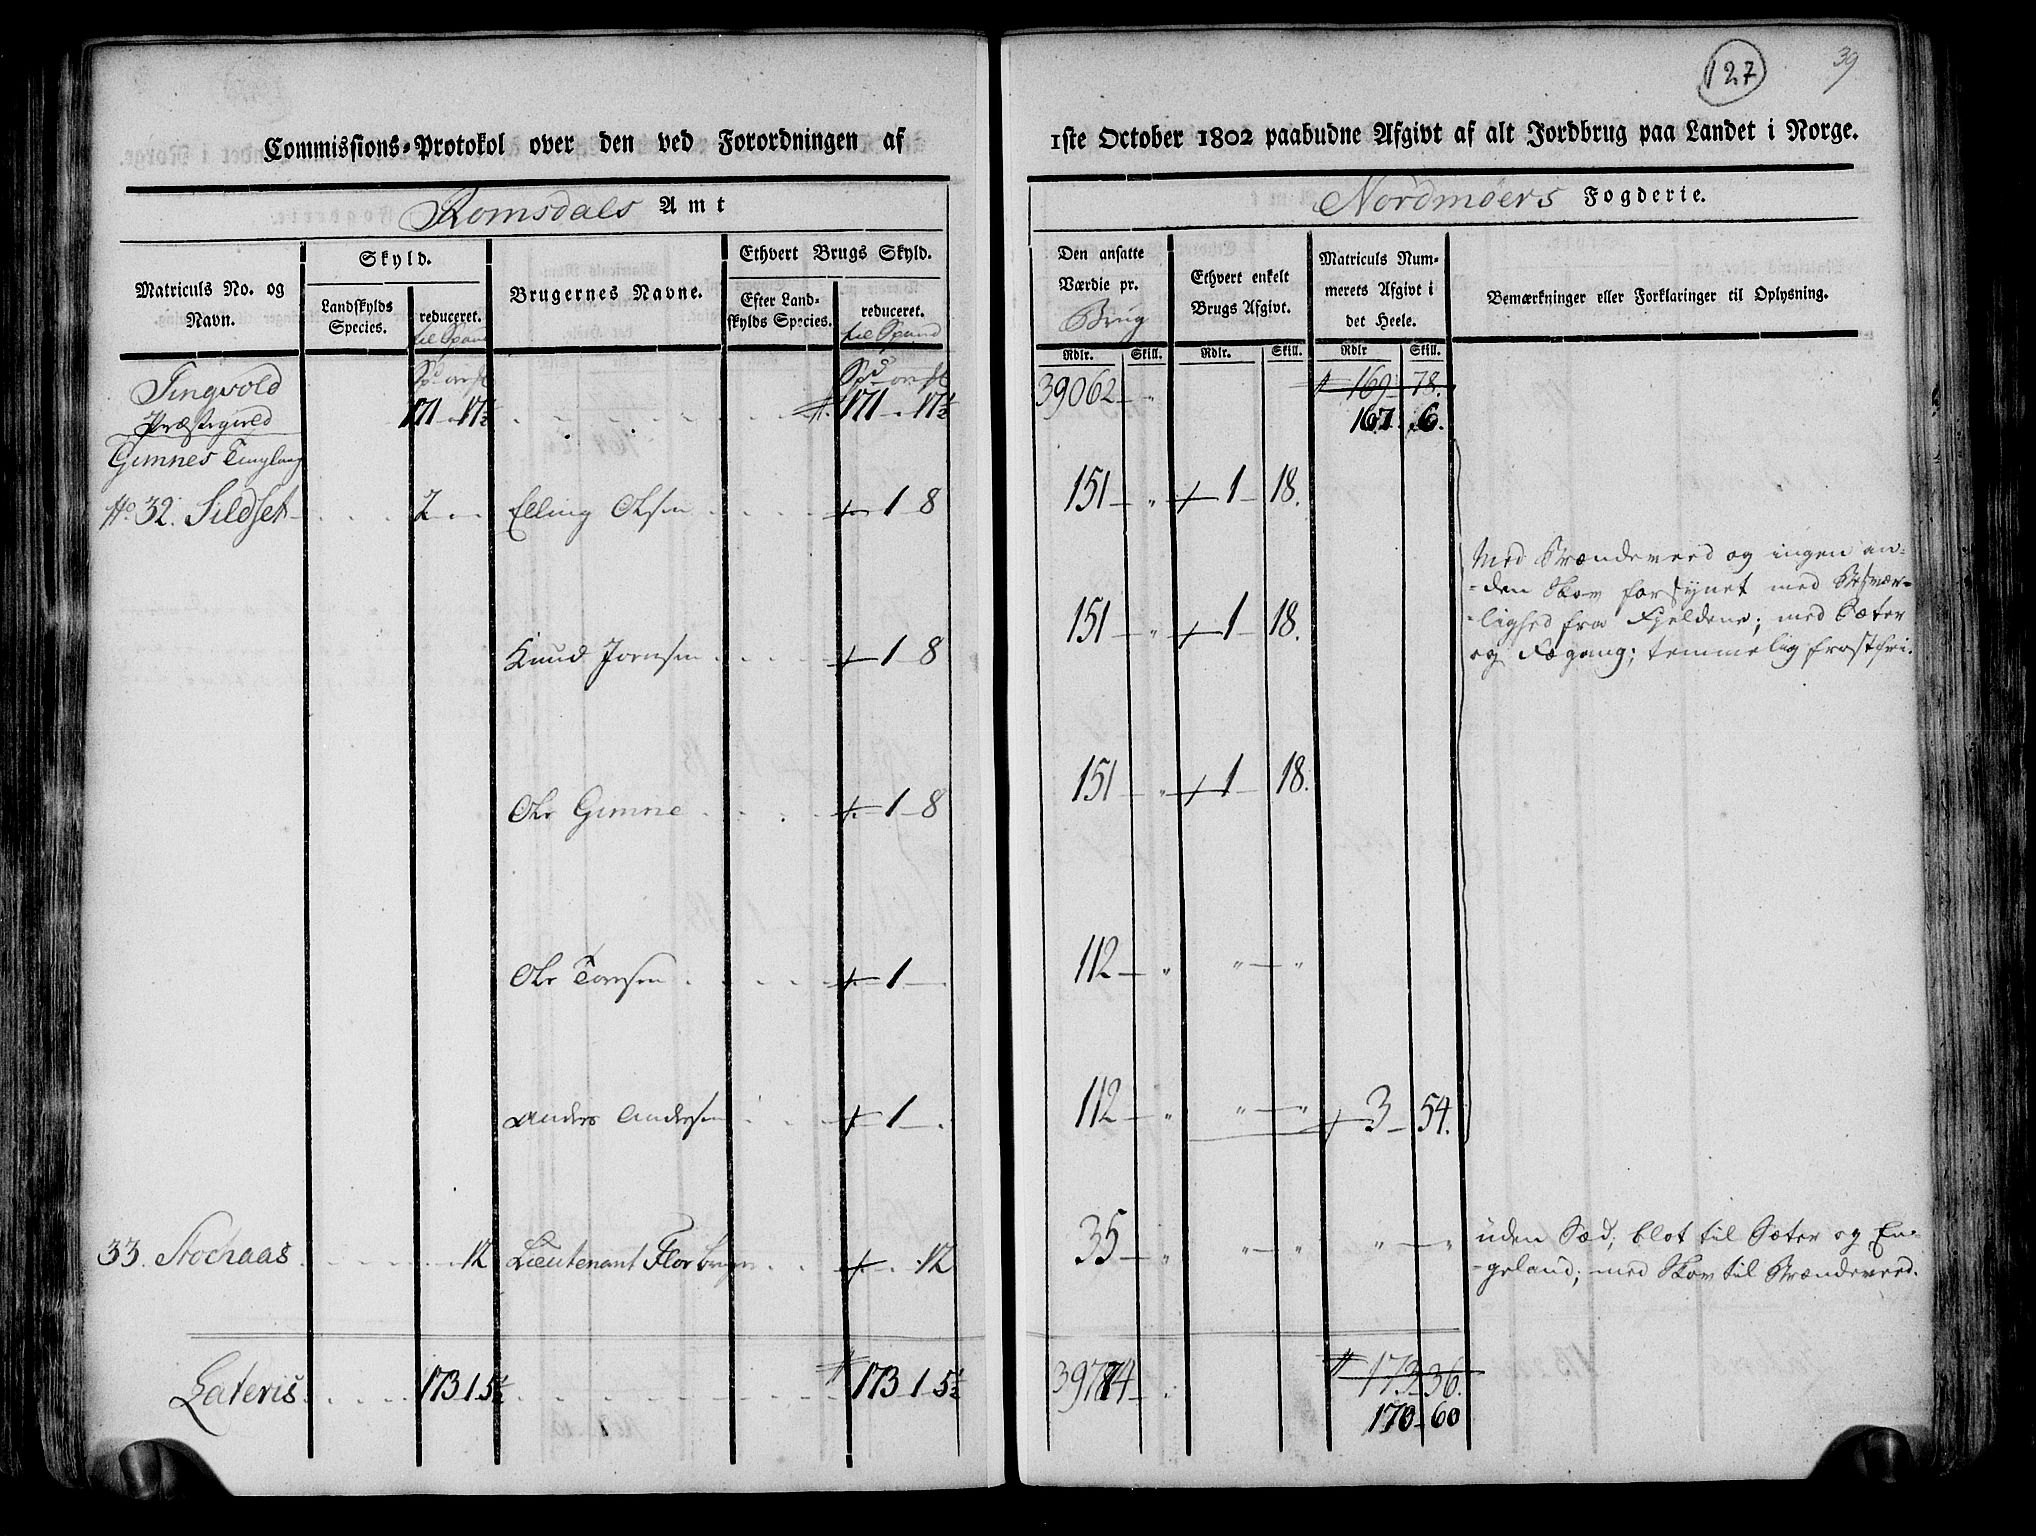 127
39
Commissions-Protokol over den ved Forordningen af 1ste October 1802 paabudne Afgivt af alt Jordbrug paa Landet i Norge.
Romsdals Amt
Nordmøers Fogderie.
Matriculs No. og Navn.
Skyld.
Landskylds Species.
reduceret. til Spand
Brugernes Navne.
Ethvert Brugs Skyld.
Efter Landskylds Species.
reduceret. til Spand
Den ansatte Værdie pr. Brug
Ethvert enkelt Brugs Afgivt.
Matriculs Nummerets Afgivt i det Heele.
Bemærkninger eller Forklaringer til Oplysning.
Rdlr. Skill. Rdlr. Skill. Rdlr Skill.
Tingvold
Præstegield 171 - 17½ 171 - 17½ 39062 - " 169 - 78.
167 6.
Gimnes Tinglaug
No. 32. Sildset 2 Elling Olsen 1 - 8 151 - " 1 - 18.
Knud Jonsen 1 - 8 151 - " 1 - 18.
Ole Gimne 1 - 8 151 - " 1 - 18.
Ole Toresen 1 - 112 - " " - "
Anders Andersen 1 - 112 - " " - " 3 - 54.
Med Brændeveed og ingen an-
-den Skov forsynet med Besvær-
-lighed fra Fjeldene; med Sæter
og Fægang; temmelig frostfri.
33. Stochaas 12 Lieutenant Flor bruger 12 35 - " " - " " - "
uden Sæd; blot til Sæter og En-
-geland; med Skov til Brændeveed.
Lateris 173 1 5½ 173 1 5½ 39774 - 173 - 36.
170 - 60